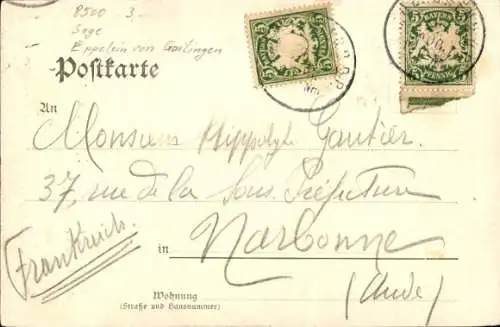 8500 3.-
Sage
Eppelein von Gailingen
Postkarte
BAYERN
5 5
BAYERN
5 5
PFENNIG
An
Monsieur Hippolyte Gautier.
37, rue de la Sous Préfecture
in Narbonne
(Aude)
Frankreich.
Wohnung
(Straße und Hausnummer)